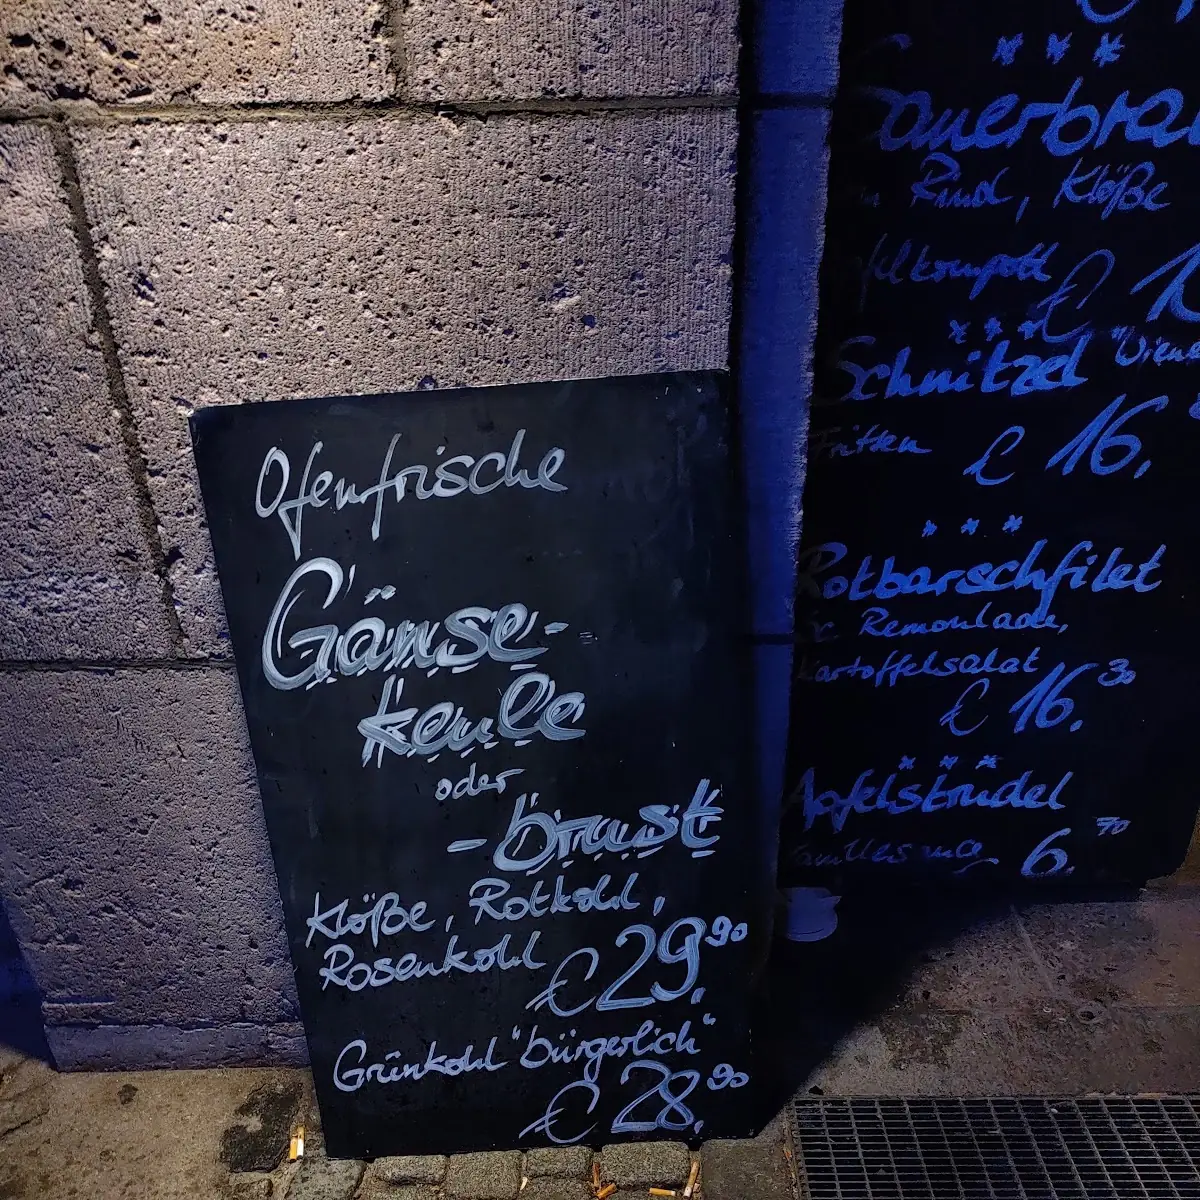 Ofenfrische
Gänse-
keule
oder
-brust
Klöße, Rotkohl,
Rosenkohl
€ 29,90
Grünkohl "bürgerlich"
€ 28,90
* * *
Rind, Klöße
€
* * *
Schnitzel
Fritten
€ 16,
* * *
Rotbarschfilet
Remoulade,
Kartoffelsalat
€ 16,30
* * *
Apfelstrudel
6,70